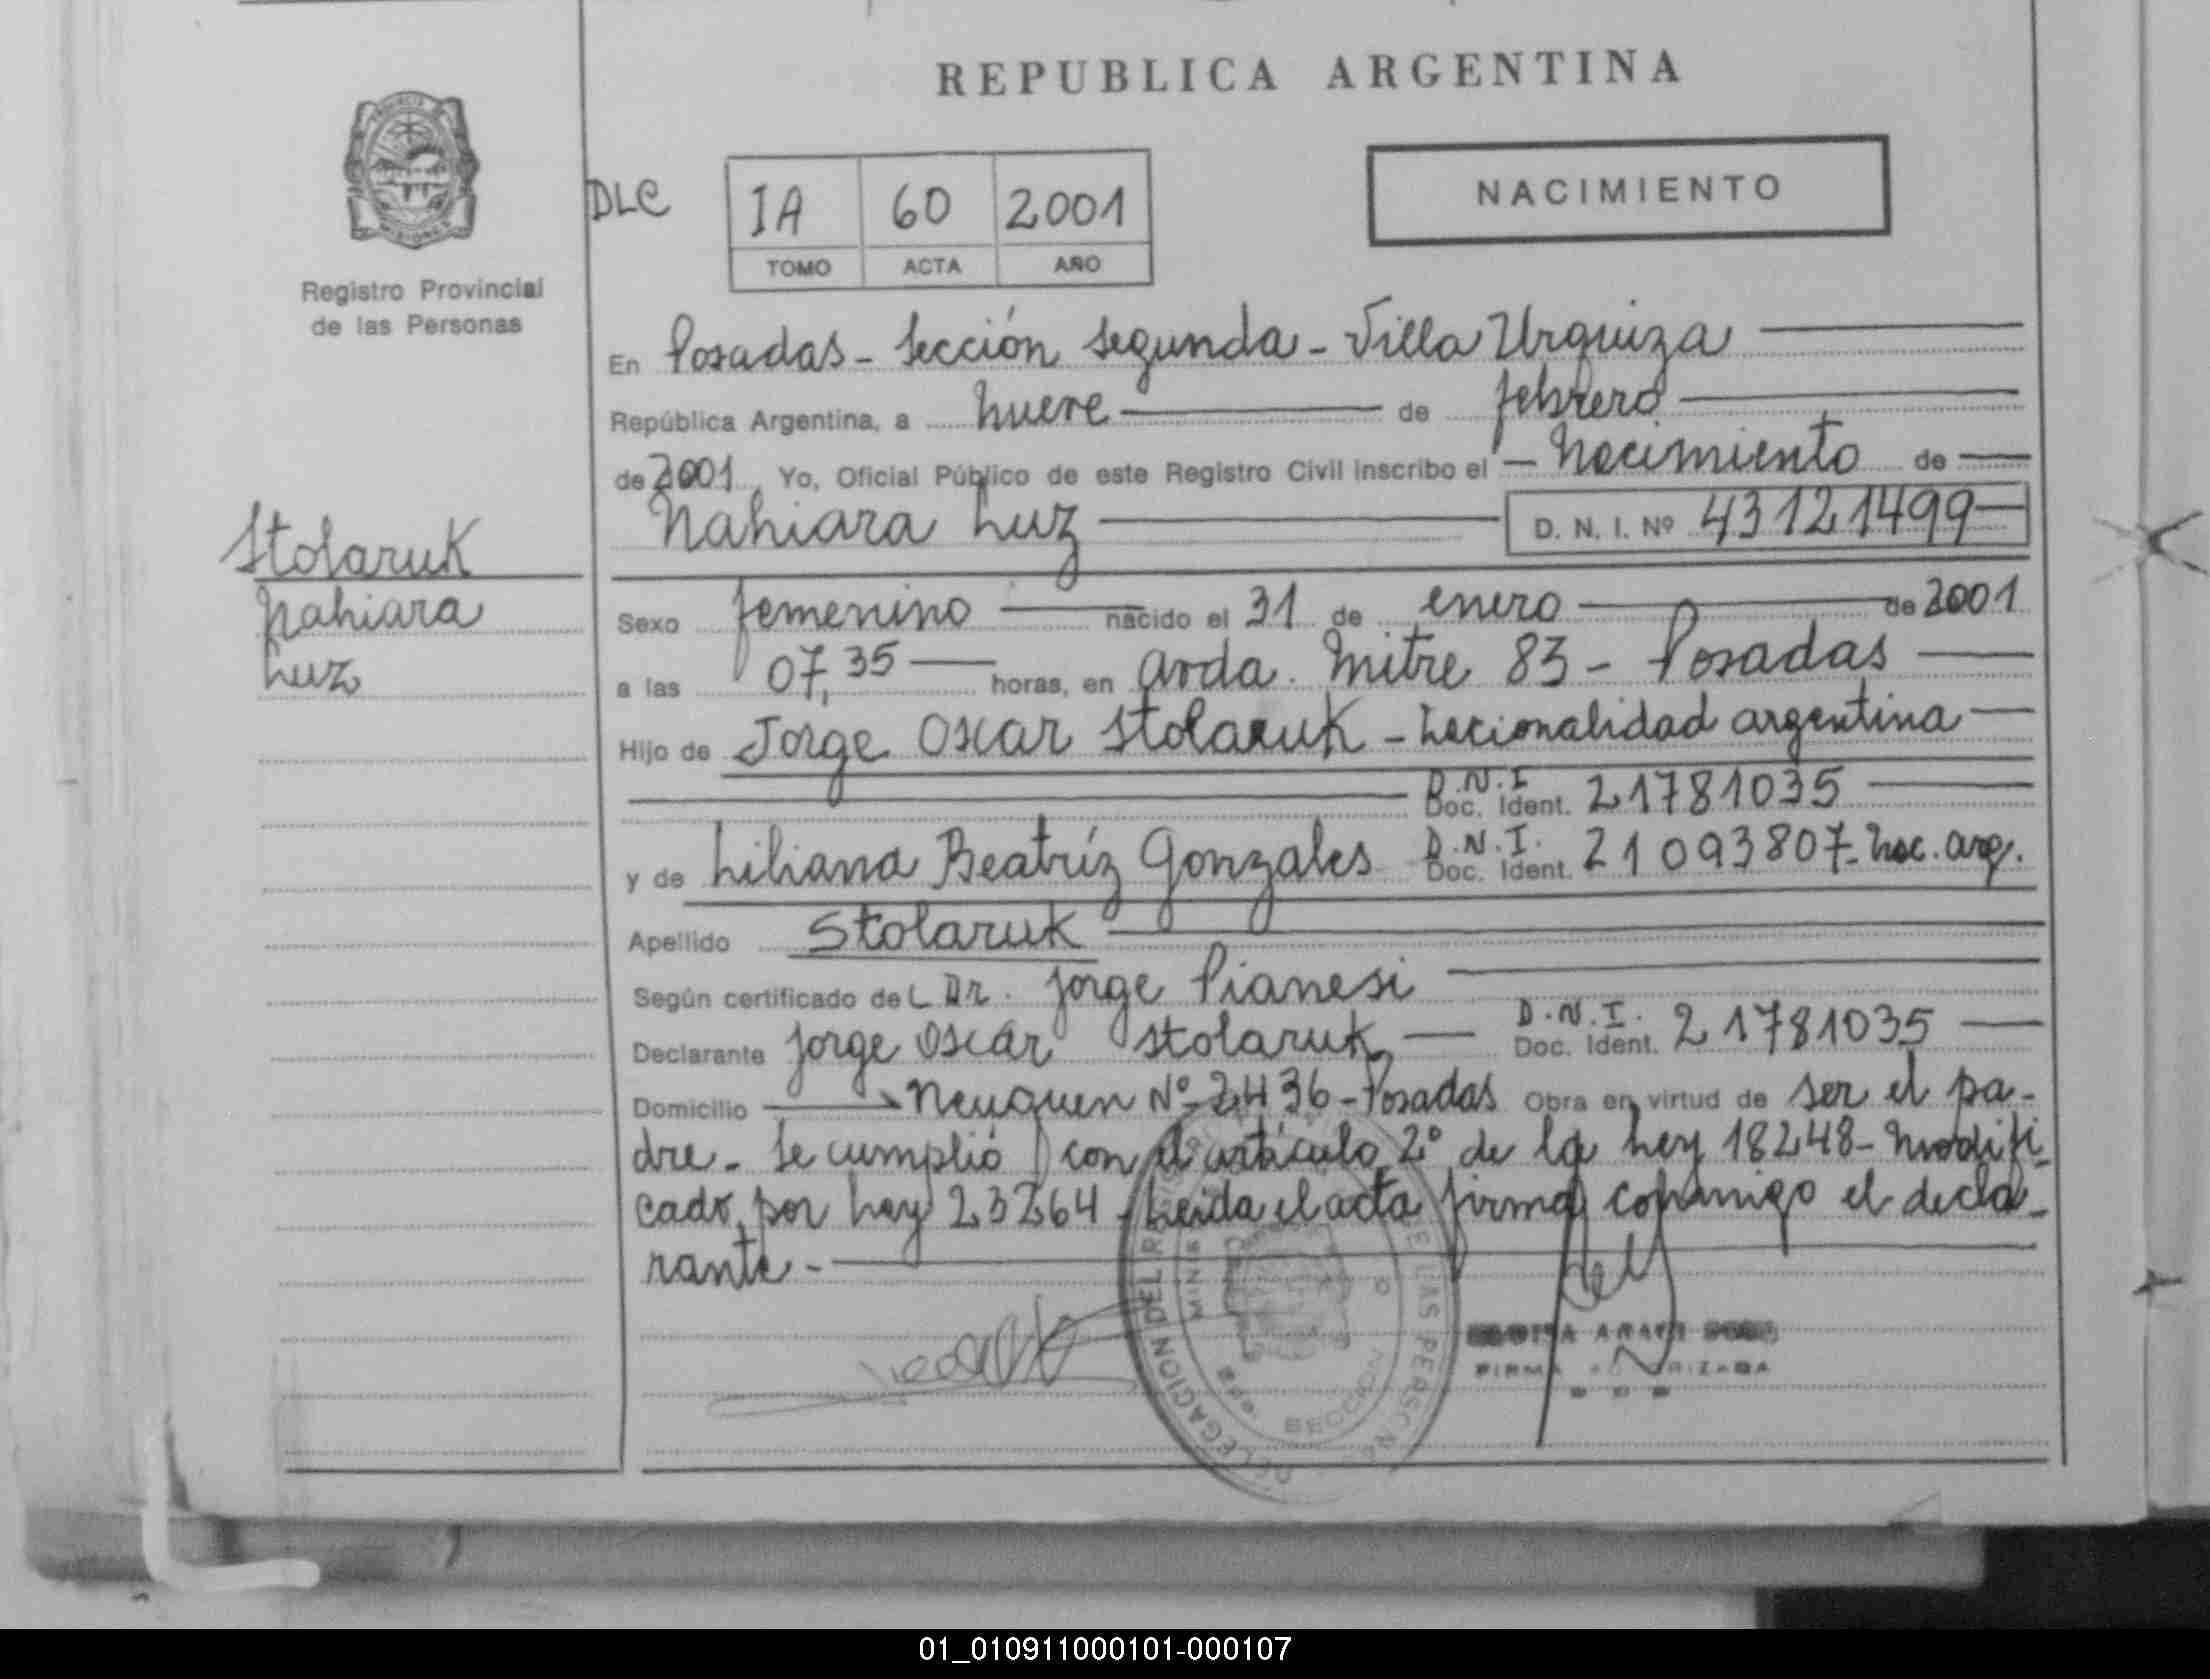 REPUBLICA ARGENTINA
NACIMIENTO
DLC
IA 60 2001
TOMO ACTA AÑO
Registro Provincial
de las Personas
En Posadas - Sección Segunda - Villa Urquiza
República Argentina, a nueve de febrero
de 2001 Yo, Oficial Público de este Registro Civil inscribo el - Nacimiento de
Nahiara Luz D. N. I. Nº 43121499
Stolaruk
Nahiara
Luz
Sexo femenino nacido el 31 de enero de 2001
a las 07,35 horas, en Avda. Mitre 83 - Posadas
Hijo de Jorge Oscar Stolaruk - Nacionalidad argentina
D.N.I
Doc. Ident. 21781035
y de Liliana Beatríz Gonzales D.N.I. Doc. Ident. 21093807 - Nac. arg.
Apellido Stolaruk
Según certificado del Dr. Jorge Pianesi
Declarante Jorge Oscar Stolaruk D.N.I. Doc. Ident. 21781035
Domicilio Neuquen Nº 2436 - Posadas Obra en virtud de ser el pa-
dre - Se cumplió con el artículo 2º de la Ley 18248 - Modifi-
cado por Ley 23264 - Leida el acta firma conmigo el decla-
rante -
DELEGACION DEL REGISTRO DE LAS PERSONAS
SECCION
FIRMA AUTORIZADA
01_010911000101-000107